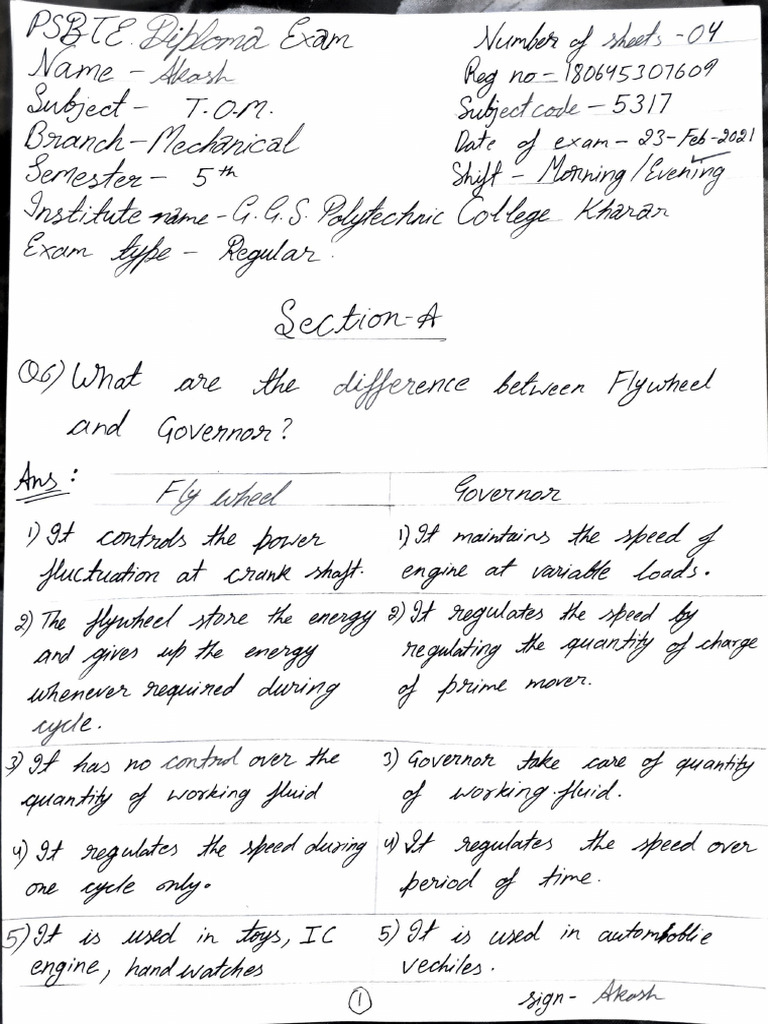 PSBTE Diploma Exam
Number of sheets - 04
Name - Akash
Reg no - 180645307609
Subject - T.O.M.
Subject code - 5317
Branch - Mechanical
Date of exam - 23-Feb-2021
Semester - 5th
Shift - Morning / Evening
Institute name - G.G.S. Polytechnic College Kharar
Exam type - Regular.
Section-A
Q6) What are the difference between Flywheel
and Governor?
Ans:
Fly wheel
Governor
1) It controls the power
fluctuation at crank shaft.
1) It maintains the speed of
engine at variable loads.
2) The flywheel store the energy
and gives up the energy
whenever required during
cycle.
2) It regulates the speed by
regulating the quantity of charge
of prime mover.
3) It has no control over the
quantity of working fluid
3) Governor take care of quantity
of working fluid.
4) It regulates the speed during
one cycle only.
4) It regulates the speed over
period of time.
5) It is used in toys, IC
engine, hand watches
5) It is used in automboblie
vechiles.
1
sign - Akash